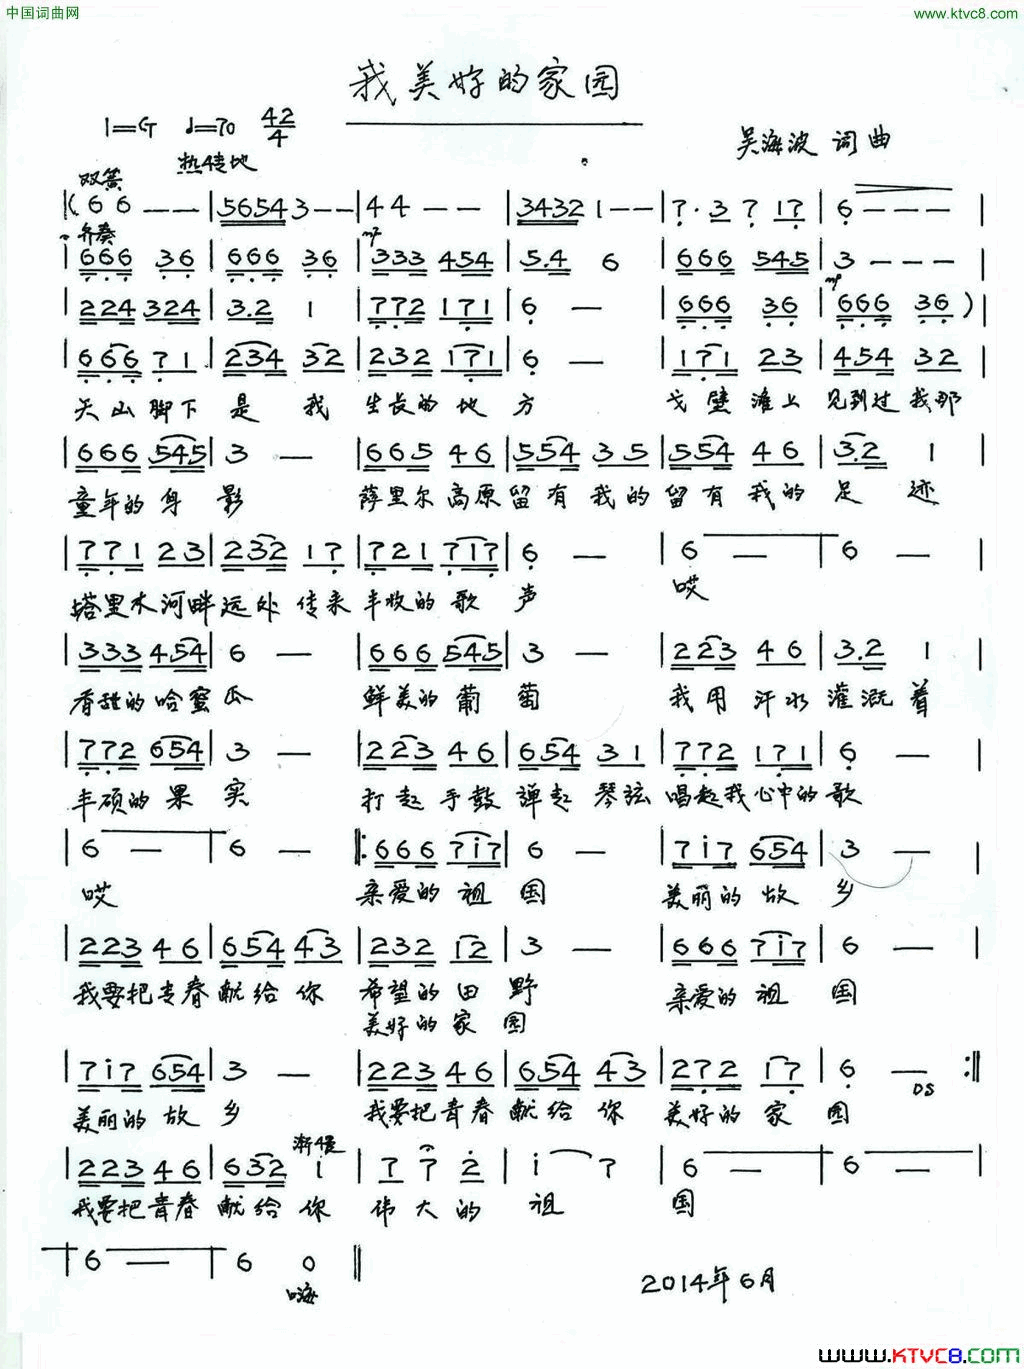 中国词曲网
www.ktvc8.com
我美好的家园
1=G ♩=70 42/4
吴海波 词曲
双簧
|(6 6 — —|5654 3 — —|4 4 — —|3432 1 — —|7· 3 7 17|6 — — —|
齐奏
mf
|666 36|666 36|333 454|5.4 6|666 545|3 — — —|
mp
|224 324|3.2 1|772 171|6 —|666 36|666 36)|
|666 71|234 32|232 171|6 —|171 23|454 32|
天山脚下是我生长的地方 戈壁滩上见到过我那
|666 545|3 —|665 46|554 35|554 46|3.2 1|
童年的身影 萨里尔高原留有我的留有我的足迹
|771 23|232 17|721 717|6 —|6 —|6 —|
塔里木河畔远处传来丰收的歌声 哎
|333 454|6 —|666 545|3 —|223 46|3.2 1|
香甜的哈蜜瓜 鲜美的葡萄 我用汗水灌溉着
|772 654|3 —|223 46|654 31|772 171|6 —|
丰硕的果实 打起手鼓弹起琴弦唱起我心中的歌
|6 —|6 —|:666 717|6 —|717 654|3 —|
哎 亲爱的祖国 美丽的故乡
|223 46|654 43|232 12|3 —|666 717|6 —|
我要把青春献给你 希望的田野 亲爱的祖国
美好的家园
|717 654|3 —|223 46|654 43|272 17|6 — :||
DS
美丽的故乡 我要把青春献给你 美好的家园
渐慢
|223 46|632 i|7 7 2|i 7|6 —|6 —|
我要把青春献给你 伟大的祖国
|6 —|6 0||
嗨
2014年6月
www.KTVC8.com